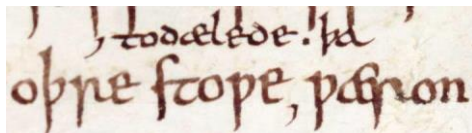 ⁊ todælede. þa
oþre stoƿe ⁊ ƿæron